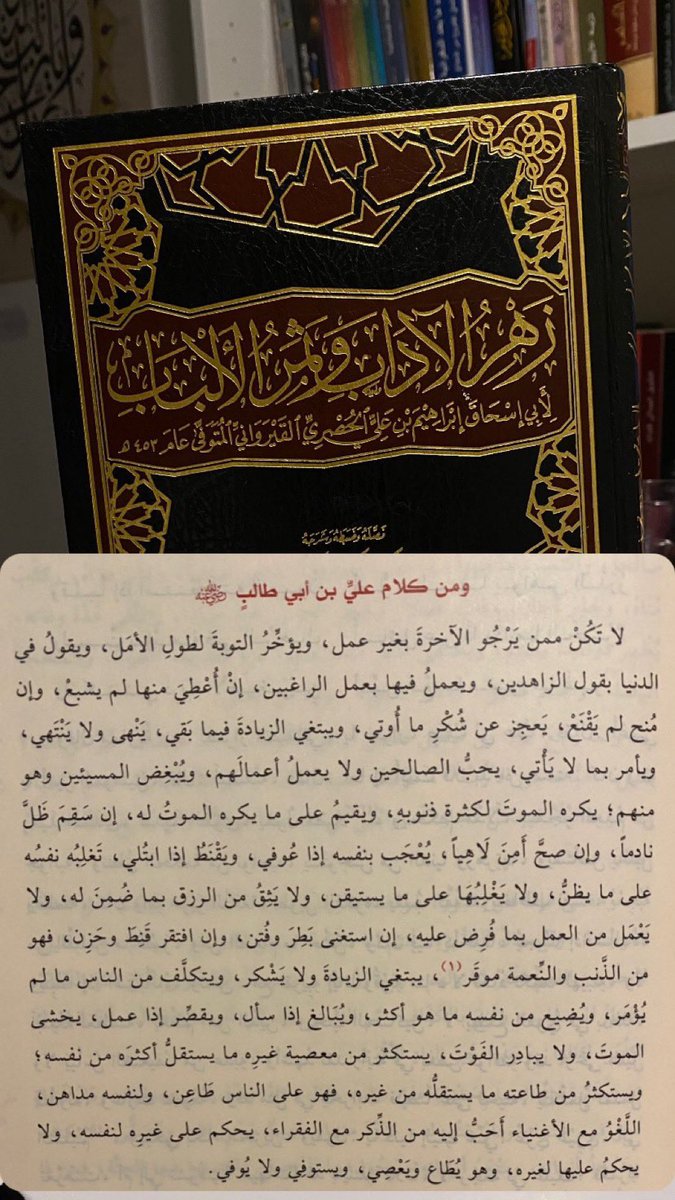 زَهْرُ الآدَابِ وَثَمَرُ الأَلْبَابِ
لِأَبِي إِسْحَاقَ إِبْرَاهِيمَ بْنِ عَلِيٍّ الْحُصْرِيِّ الْقَيْرَوَانِيِّ الْمُتَوَفَّى عَامَ ٤٥٣ هـ
ومن كلام عليِّ بن أبي طالبٍ
لا تَكُنْ ممن يَرْجُو الآخرةَ بغير عمل، ويؤخِّرُ التوبةَ لطولِ الأمَل، ويقولُ في
الدنيا بقول الزاهدين، ويعملُ فيها بعمل الراغبين، إنْ أُعْطِيَ منها لم يشبعْ، وإن
مُنح لم يَقْنَعْ، يَعجِز عن شُكْرِ ما أُوتي، ويبتغي الزيادةَ فيما بَقي، يَنْهى ولا يَنْتَهي،
ويأمر بما لا يَأْتي، يحبُّ الصالحين ولا يعملُ أعمالَهم، ويُبْغِض المسيئين وهو
منهم؛ يكره الموتَ لكثرة ذنوبهِ، ويقيمُ على ما يكره الموتُ له، إن سَقِمَ ظَلَّ
نادماً، وإن صحَّ أَمِنَ لَاهِياً، يُعْجَب بنفسه إذا عُوفي، ويَقْنَطُ إذا ابتُلي، تَغلِبُه نفسُه
على ما يظنُّ، ولا يَغْلِبُهَا على ما يستيقن، ولا يَثِقُ من الرزق بما ضُمِنَ له، ولا
يَعْمَل من العمل بما فُرِض عليه، إن استغنى بَطِرَ وفُتن، وإن افتقر قَنِطَ وحَزِن، فهو
من الذَّنب والنِّعمة موقَر(١)، يبتغي الزيادةَ ولا يَشْكر، ويتكلَّف من الناس ما لم
يُؤْمَر، ويُضِيع من نفسه ما هو أكثر، ويُبَالغ إذا سأل، ويقصِّر إذا عمل، يخشى
الموتَ، ولا يبادِر الفَوْتَ، يستكثر من معصية غيرِه ما يستقلُّ أكثرَه من نفسه؛
ويستكثرُ من طاعته ما يستقلُّه من غيره، فهو على الناس طَاعِن، ولنفسه مداهن،
اللَّغْوُ مع الأغنياء أَحَبُّ إليه من الذِّكر مع الفقراء، يحكم على غيرِه لنفسه، ولا
يحكمُ عليها لغيره، وهو يُطَاع ويَعْصِي، ويستوفِي ولا يُوفي.